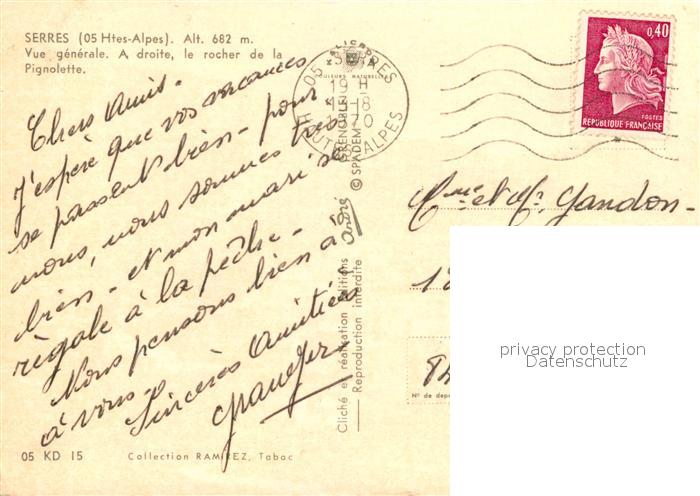 SERRES (05 Htes-Alpes). Alt. 682 m.
Vue générale. A droite, le rocher de la
Pignolette.
Chers Amis.
J'espère que vos vacances
se passent bien - pour
nous, nous sommes très
bien - et mon mari se
régale à la pêche -
Nous pensons bien à
à vous -
Sincères Amitiés
05 KD 15
Collection RAMIREZ, Tabac
COULEURS NATURELLES
GRENOBLE
© SPADEM
Cliché et réalisation éditions André
Reproduction interdite
05 SERRES
19 H
-8
1970
HAUTES ALPES
0,40
POSTES
REPUBLIQUE FRANÇAISE
Mme et Mr. Gandon -
privacy protection
Datenschutz
N° de dépo